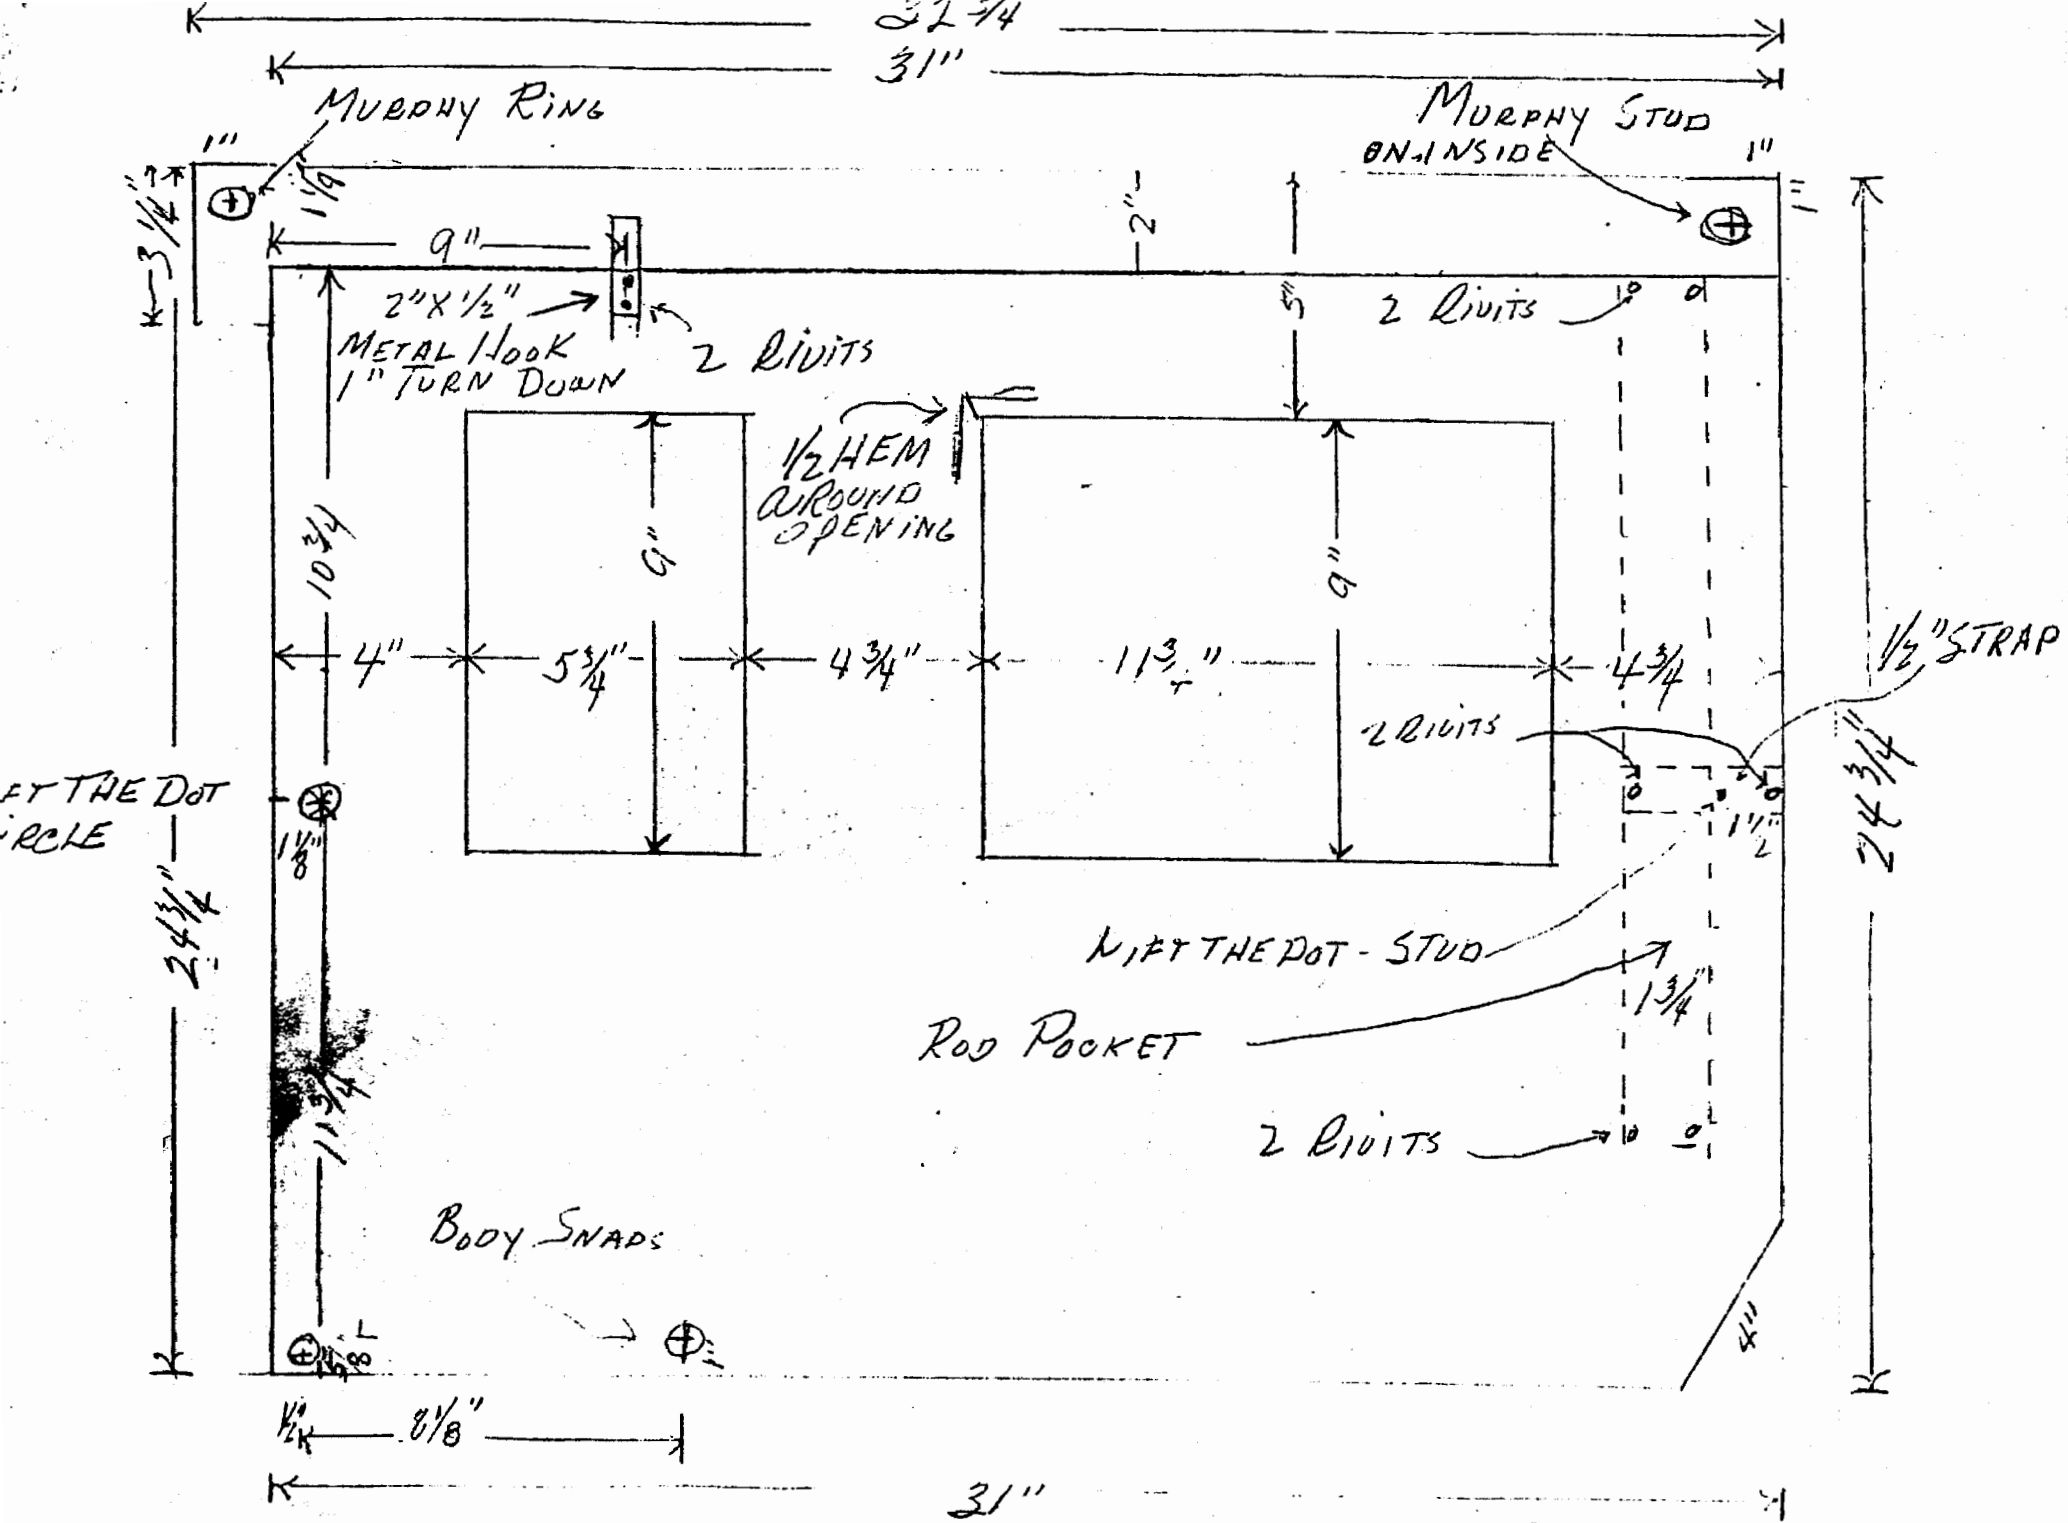 32 3/4
31"
MURPHY RING
MURPHY STUD
ON INSIDE
1"
1"
1"
3 1/4"
9"
2"
5"
2" X 1/2"
METAL HOOK
1" TURN DOWN
2 RIVITS
2 RIVITS
1/2 HEM
AROUND
OPENING
10 3/4
9"
9"
4"
5 3/4"
4 3/4"
11 3/
4 3/4
1/2" STRAP
2 RIVITS
THE DOT
1 1/8"
1 1/2"
24 3/4"
24 3/4"
LIFT THE DOT - STUD
1 3/4"
ROD POCKET
11 3/4
2 RIVITS
BODY SNAPS
4"
1"
1/2"
8 1/8"
31"